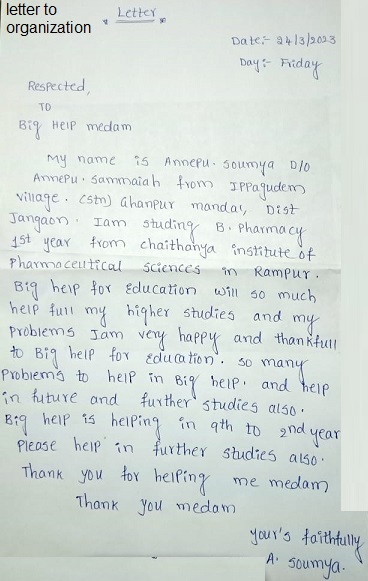 letter to
organization
* Letter *
Date:- 24/3/2023
Day:- Friday
Respected,
TO
Big Help medam
My name is Annepu. Soumya D/o
Annepu. Sammaiah from IPPagudem
village. (Stn) Ghanpur mandal, Dist
Jangaon. Iam studing B. Pharmacy
1st year from chaithanya institute of
Pharmaceutical sciences in Rampur.
Big help for Education will so much
help full my higher studies and my
Problems Iam very happy and thankfull
to Big help for Education. so many
Problems to help in Big help. and help
in future and further studies also.
Big help is helping in 9th to 2nd year
Please help in further studies also.
Thank you for helping me medam
Thank you medam
your's faithfully
A. Soumya.